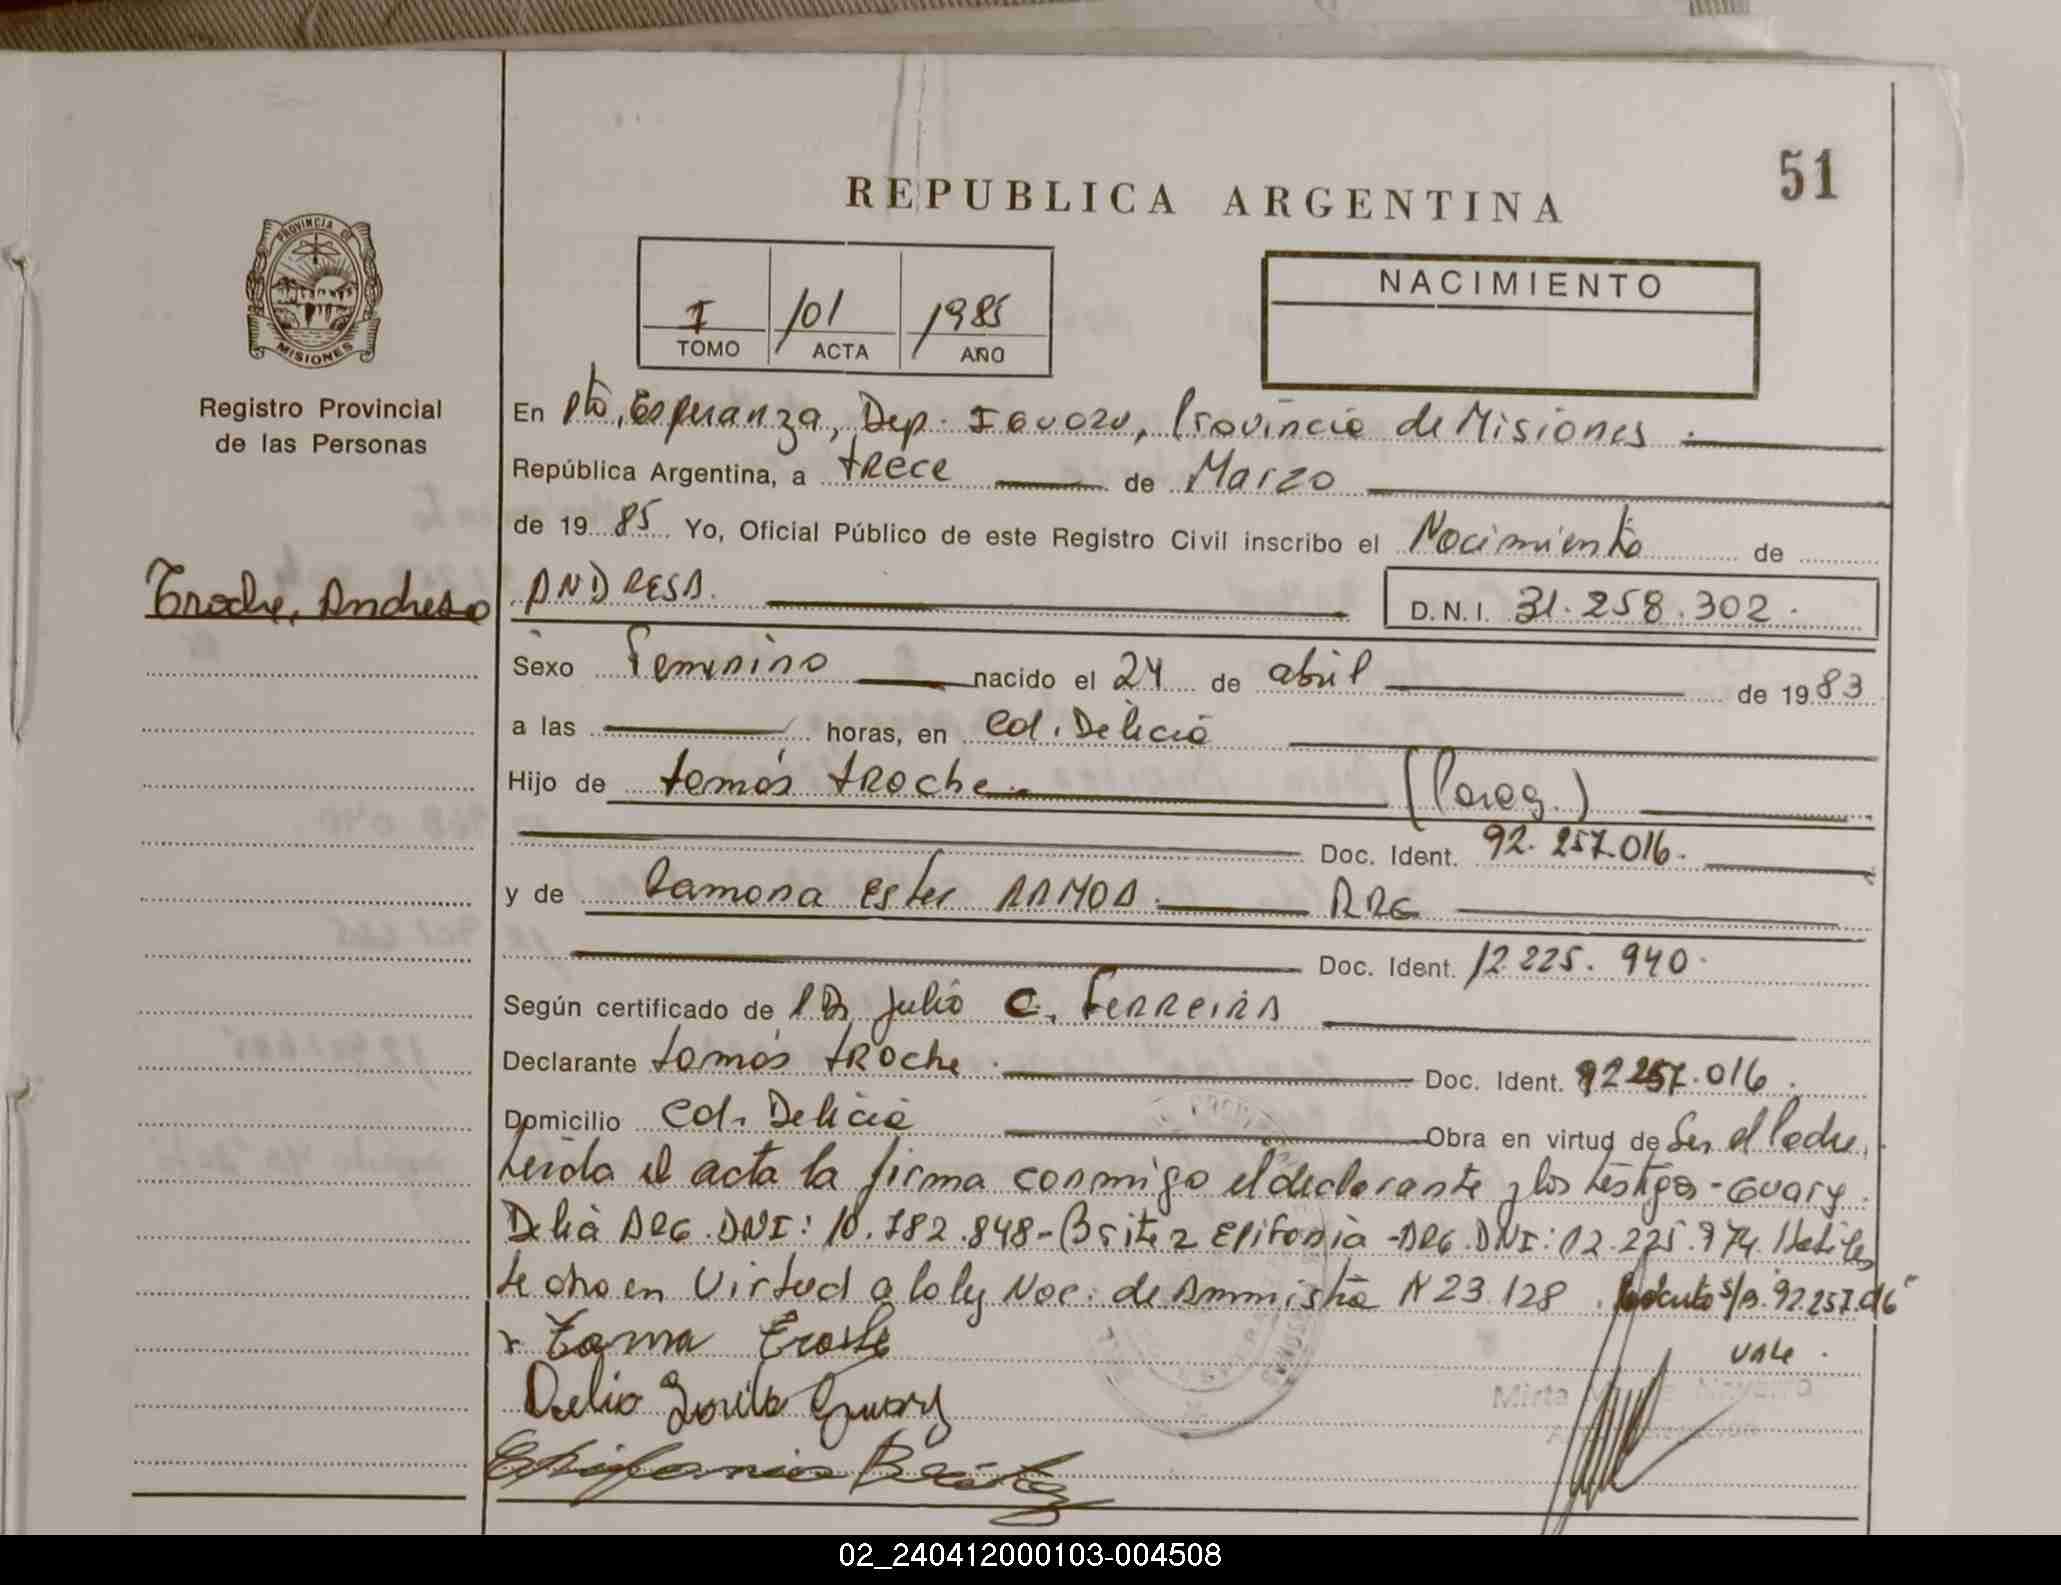 51
REPUBLICA ARGENTINA
PROVINCIA DE
MISIONES
NACIMIENTO
I /101 /1985
TOMO ACTA AÑO
Registro Provincial
de las Personas
En Pto. Esperanza, Dep. Iguazu, Provincia de Misiones
República Argentina, a trece de Marzo
de 1985 Yo, Oficial Público de este Registro Civil inscribo el Nacimiento de
Troche, Andresa
ANDRESA. D.N.I. 31.258.302.
Sexo Femenino nacido el 24 de abril de 1983
a las horas, en Col. Delicia
Hijo de tomás troche (Parag.)
Doc. Ident. 92.257.016.
y de Ramona Ester RAMOA ARG
Doc. Ident. 12.225.940.
Según certificado de Julio C. Ferreira
Declarante tomás troche Doc. Ident. 92257.016.
Domicilio Col. Delicia Obra en virtud de Ser el Padre.
Leída el acta la firma conmigo el declarante y los testigos - Guary
Delia ARG. DNI: 10.782.848 - Britez Epifania - ARG. DNI: 12.225.974.
en Virtud a la ley Nac. de Ammistia N 23.128 s/b. 92.257.016
vale.
Delia Guary
Epifania Britez
Mirta
02_240412000103-004508